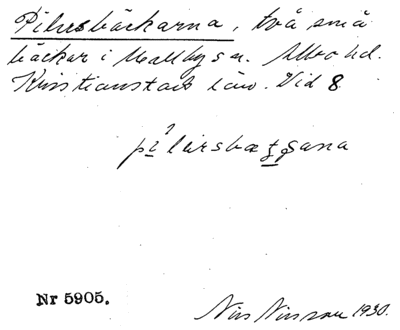 Pilersbäckarna, två små
bäckar i Mellby sn. Albo hd.
Kristianstads län. Vid 8
Nr 5905.
Nils Nilsson 1930.